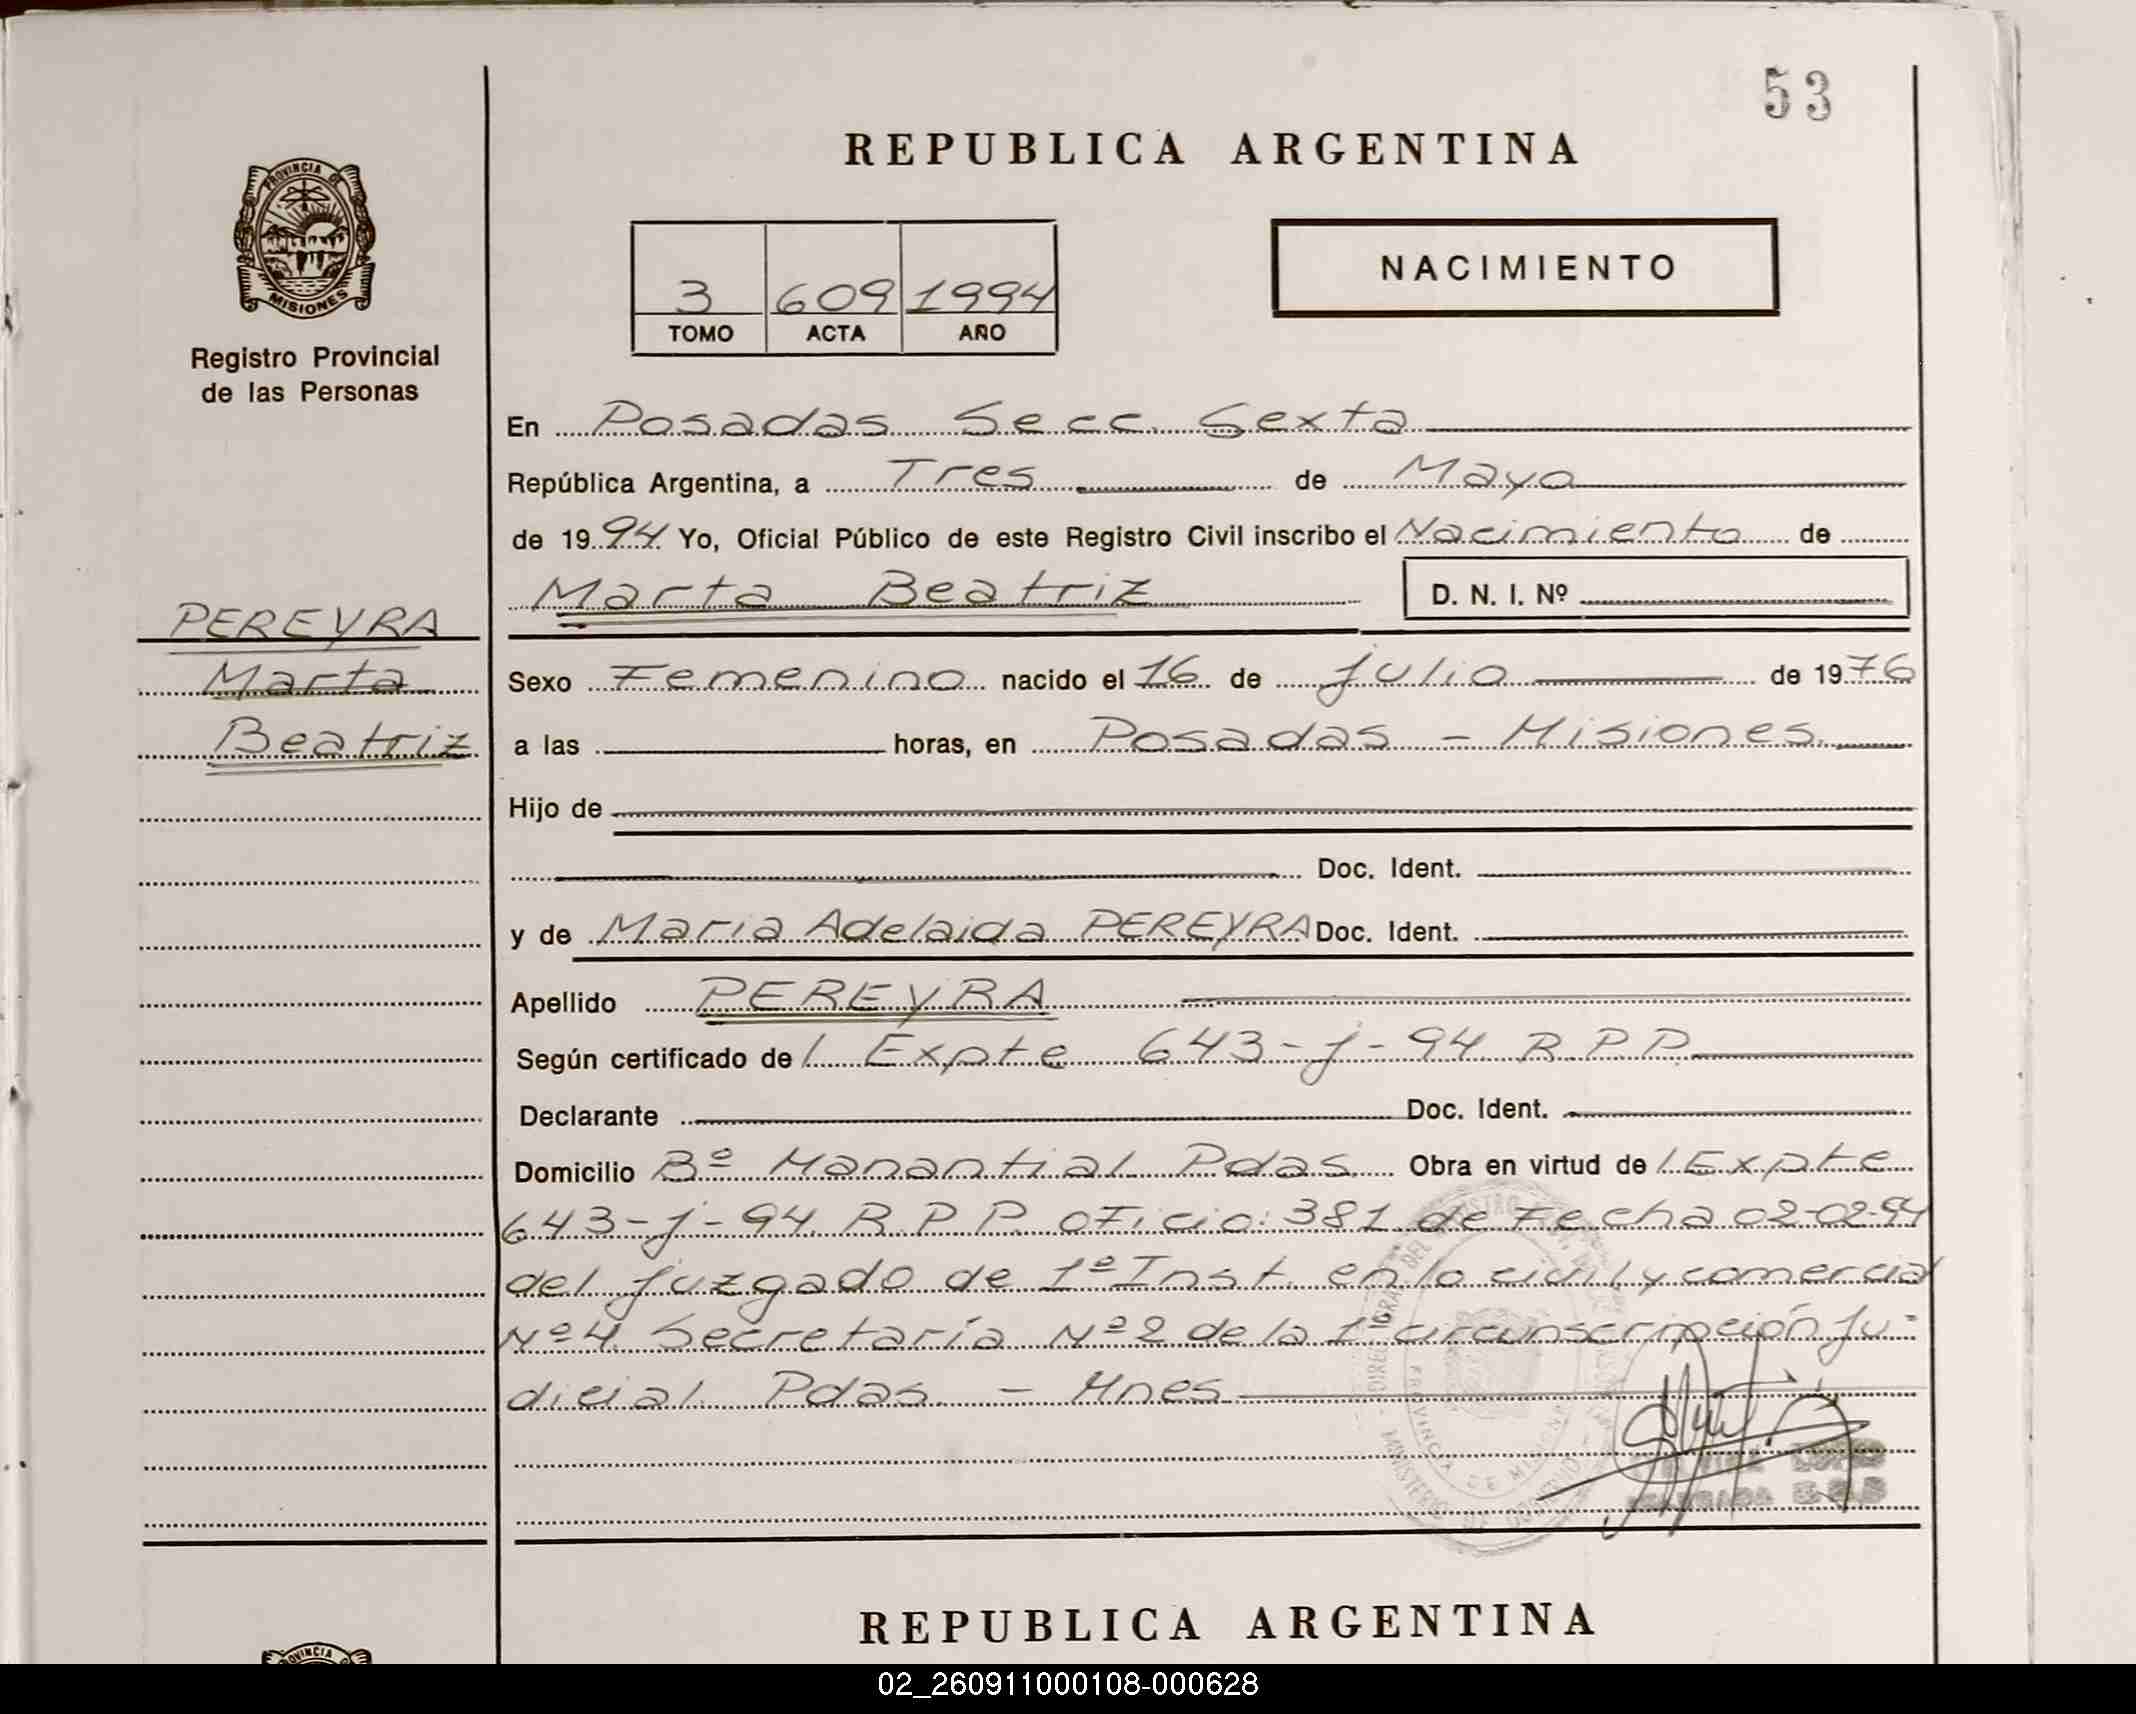 53
REPUBLICA ARGENTINA
PROVINCIA DE
MISIONES
Registro Provincial
de las Personas
3 609 1994
TOMO ACTA AÑO
NACIMIENTO
En Posadas Secc. Sexta
República Argentina, a Tres de Mayo
de 1994 Yo, Oficial Público de este Registro Civil inscribo el Nacimiento de
Marta Beatriz D. N. I. Nº
PEREYRA
Marta
Beatriz
Sexo Femenino nacido el 16 de julio de 1976
a las horas, en Posadas - Misiones.
Hijo de
Doc. Ident.
y de Maria Adelaida PEREYRA Doc. Ident.
Apellido PEREYRA
Según certificado de /. Expte 643-j-94 R.P.P.
Declarante Doc. Ident.
Domicilio Bº Manantial Pdas. Obra en virtud de /. Expte
643-j-94. R.P.P. oficio: 381 de Fecha 02-02-94
del juzgado de 1º Inst. en lo civil y comercial
Nº 4. Secretaría Nº 2 de la 1º circunscripción ju-
dicial. Pdas. - Mnes.
PROVINCIA DE MISIONES
MINISTERIO DE GOBIERNO
REPUBLICA ARGENTINA
PROVINCIA DE
02_260911000108-000628